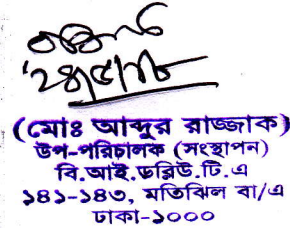 (মোঃ আব্দুর রাজ্জাক)
উপ-পরিচালক (সংস্থাপন)
বি.আই.ডব্লিউ.টি.এ
১৪১-১৪৩, মতিঝিল বা/এ
ঢাকা-১০০০